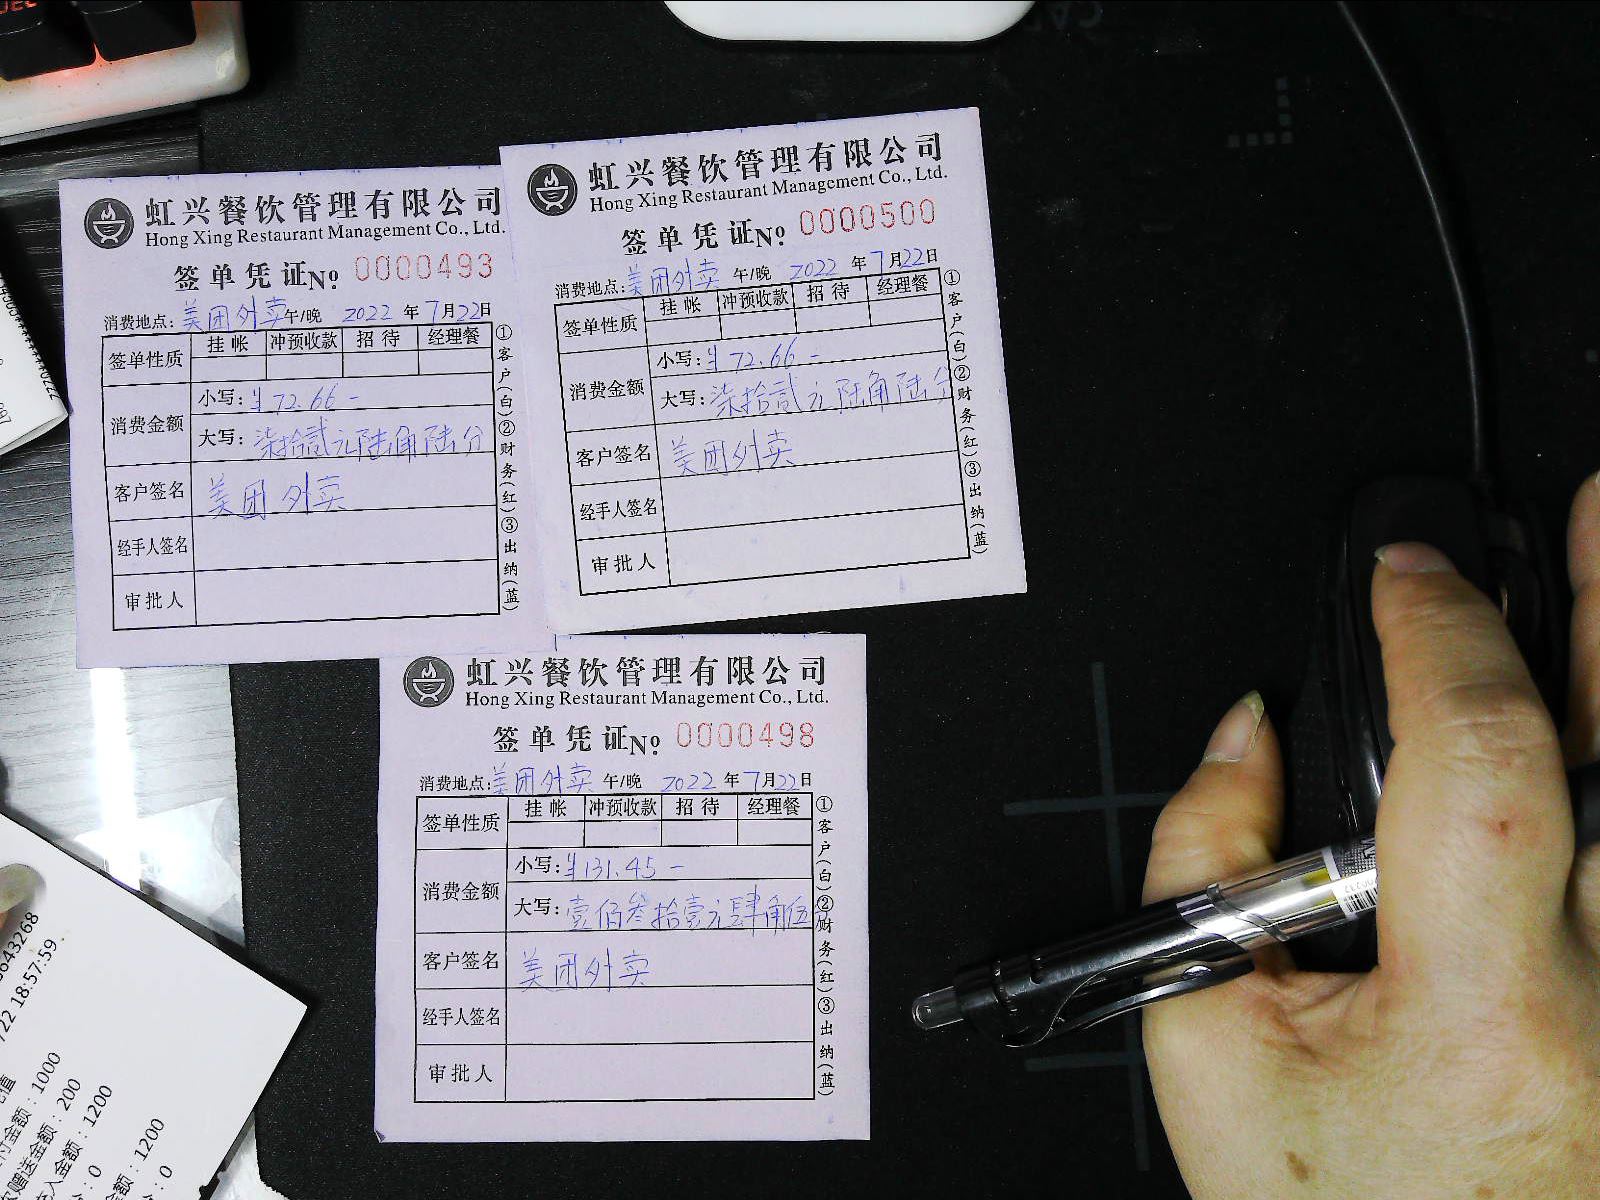 虹兴餐饮管理有限公司
Hong Xing Restaurant Management Co., Ltd.
签单凭证No. 0000493
消费地点: 美团外卖 午/晚 2022 年 7 月 22 日
签单性质 挂帐 冲预收款 招待 经理餐
消费金额
小写: ¥ 72.66 -
大写: 柒拾贰元陆角陆分
客户签名 美团外卖
经手人签名
审批人
①客户(白)②财务(红)③出纳(蓝)
虹兴餐饮管理有限公司
Hong Xing Restaurant Management Co., Ltd.
签单凭证No. 0000500
消费地点: 美团外卖 午/晚 2022 年 7 月 22 日
签单性质 挂帐 冲预收款 招待 经理餐
消费金额
小写: ¥ 72.66 -
大写: 柒拾贰元陆角陆分
客户签名 美团外卖
经手人签名
审批人
①客户(白)②财务(红)③出纳(蓝)
虹兴餐饮管理有限公司
Hong Xing Restaurant Management Co., Ltd.
签单凭证No. 0000498
消费地点: 美团外卖 午/晚 2022 年 7 月 22 日
签单性质 挂帐 冲预收款 招待 经理餐
消费金额
小写: ¥ 131.45 -
大写: 壹佰叁拾壹元肆角伍分
客户签名 美团外卖
经手人签名
审批人
①客户(白)②财务(红)③出纳(蓝)
643268
722 18:57:59
付金额: 1000
赠送金额: 200
入金额: 1200
: 0
额: 1200
: 0